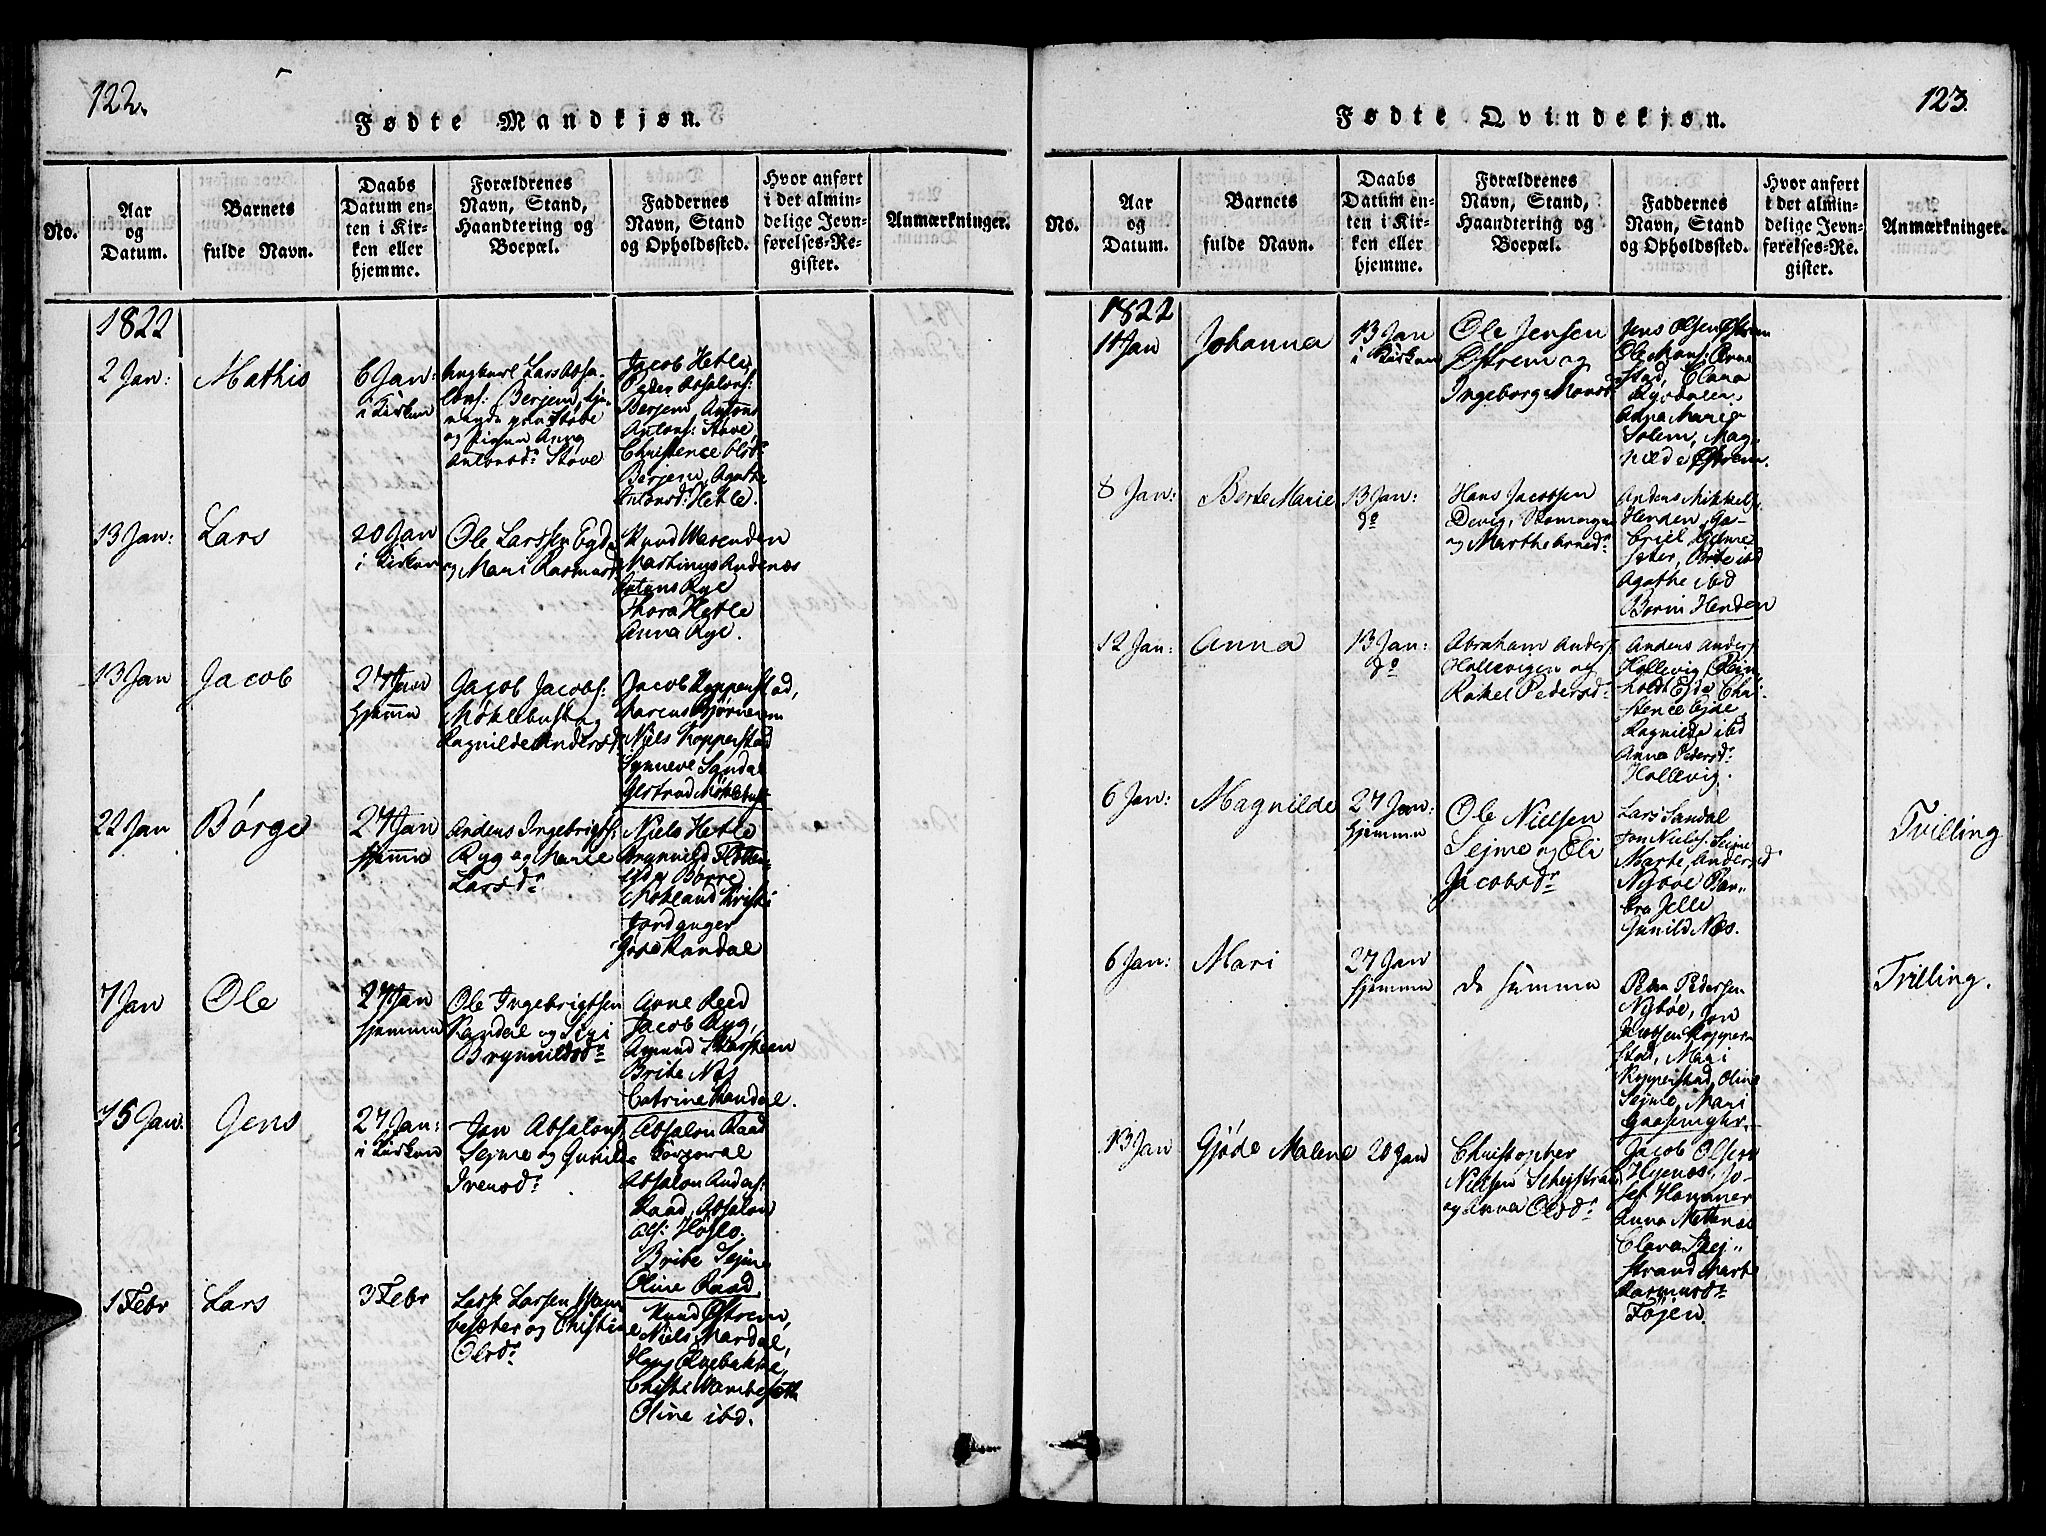 122.
Fødte Mandkjøn.
No.
Aar
og
Datum.
Barnets
fulde Navn.
Daabs
Datum en-
ten i Kir-
ken eller
hjemme.
Forældrenes
Navn, Stand,
Haandtering og
Boepæl.
Faddernes
Navn, Stand
og Opholdssted.
Hvor anført
i det almin-
delige Jevn-
førelses-Re-
gister.
Anmærkninger.
1822
2 Jan:
Mathis
6 Jan:
i Kirken
Ungkarl Lars Absa-
lons: Berjem,
og Pigen Anna
Antonsdr Støve
Jacob Hetle,
Peder Absalons:
Berjem, Antons
Antons: Støve
Christence
Berjem, Agathe
Antonsdr Hetle.
13 Jan:
Lars
20 Jan
i Kirken
Ole Larssen
og Mari Rasmusd
Knud Warenden
Martinus Andenæs
Rye
Thora Hetle
Anna Rye.
13 Jan
Jacob
27 Jan
hjemme
Jacob Jacobs:
Møklebust og
Ragnilde Andersd
Jacob Kopperstad,
Marcus Bjørnerem
Niels Kopperstad
Synneve Sandal
Møklebust
22 Jan
Børge
27 Jan
hjemme
Anders Ingebrigts:
Ryg og Marie
Larsdr
Niels Hetle
Brynnild
Børre
Møkland Kristi
Jordanger
Randal
7 Jan
Ole
27 Jan
hjemme
Ole Ingebrigtsen
Randal og Siri
Brynnildsdr
Arne Reed
Jacob Ryg,
Amund
Brite Nes
Catrine Randal.
15 Jan:
Jens
27 Jan:
i Kirken
Jan Absalons:
Sejme og Gunilde
Iversdr
Absalon Raad
Korporal
Absalon Anders:
Raad, Absalon
Høslo.
Brite Sejme
Oline Raad
1 Febr
Lars
3 Febr
Lars Larsen Wam-
besæter og Christine
Olsdr
Knud Østrem,
Niels Mardal,
Elvebakke,
Christe Wambeseth
Oline ibd.
123.
Fødte Qvindekjøn.
No.
Aar
og
Datum.
Barnets
fulde Navn.
Daabs
Datum en-
ten i Kir-
ken eller
hjemme.
Forældrenes
Navn, Stand,
Haandtering og
Boepæl.
Faddernes
Navn, Stand
og Opholdssted.
Hvor anført
i det almin-
delige Jevn-
førelses-Re-
gister.
Anmærkninger.
1822
11 Jan
Johanna
13 Jan
i Kirken
Ole Jensen
Østrem og
Ingeborg Monsd
Jens Olsen Østrem
Ole Mons: Arne
stad,
Anna Marie
Solem, Mag-
nilde Østrem.
8 Jan:
Berte Marie
13 Jan:
do
Hans Jacobsen
Devig, Skomager
og Marthe Arnedr
Anders Mikkels:
Henden, Ga-
briel Gime
seter, Brite ibd
Agathe ibd
Henden
12 Jan:
Anna
13 Jan:
do
Abraham Anders
Hollevigen og
Rakel Pedersdr
Anders Anders
Hollevig, Rein
holdt Ejde, Chri-
stence Ejde,
Ragnilde ibd
Anna Pedersdr
Hollevig.
6 Jan:
Magnilde
27 Jan:
hjemme
Ole Nielsen
Sejme og Eli
Jacobsdr
Lars Sandal
Jon Niels: Seime
Marte Andersd
Nybøe, Bar-
bra Jelle
Gunild Nes.
Tvilling
6 Jan:
Mari
27 Jan
hjemme
de samme
Peder Pedersen
Nybøe, Jon
Jacobsen Kopper-
stad, Mari
Kopperstad, Oline
Sejme, Mari
Tvilling.
13 Jan
Gjøde Malene
20 Jan
Christopher
Nielsen Schejstrand
og Anna Olsdr
Jacob Olsen
Hyenæs, Jo-
sef Hammer
Anna Mettenæs
Clara Skej-
strand Marte
Rasmusdr
Tøjen.